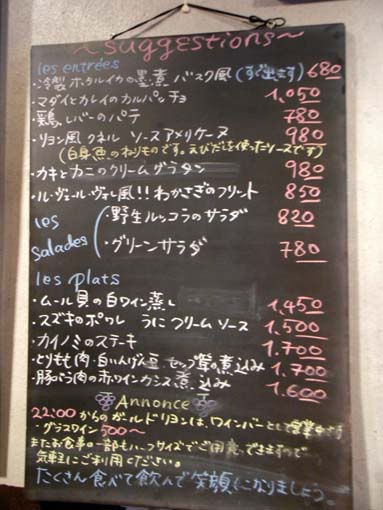 ~suggestions~
les entrées
・冷製ホタルイカの墨煮 バスク風(すぐ出ます) 680
・マダイとカレイのカルパッチョ 1,050
・鶏レバーのパテ 780
・リヨン風クネル ソースアメリケーヌ 980
(白身魚のねりものです。えびだしを使ったソースです)
・カキとカニのクリームグラタン 980
・ル・ヴェール・ヴォレ風!!わかさぎのフリット 850
les salades
・野生ルッコラのサラダ 820
・グリーンサラダ 780
les plats
・ムール貝の白ワイン蒸し 1,450
・スズキのポワレ うにクリームソース 1,500
・カイノミのステーキ 1,700
・とりもも肉・白いんげん豆・セップ茸の煮込み 1,700
・豚バラ肉の赤ワインカシス煮込み 1,600
Annonce
22:00からのガールドリヨンは、ワインバーとして営業中です
・グラスワイン 500〜
またお食事の一部もハーフサイズでご用意できますので
気軽にご利用ください。
たくさん食べて飲んで笑顔になりましょう。